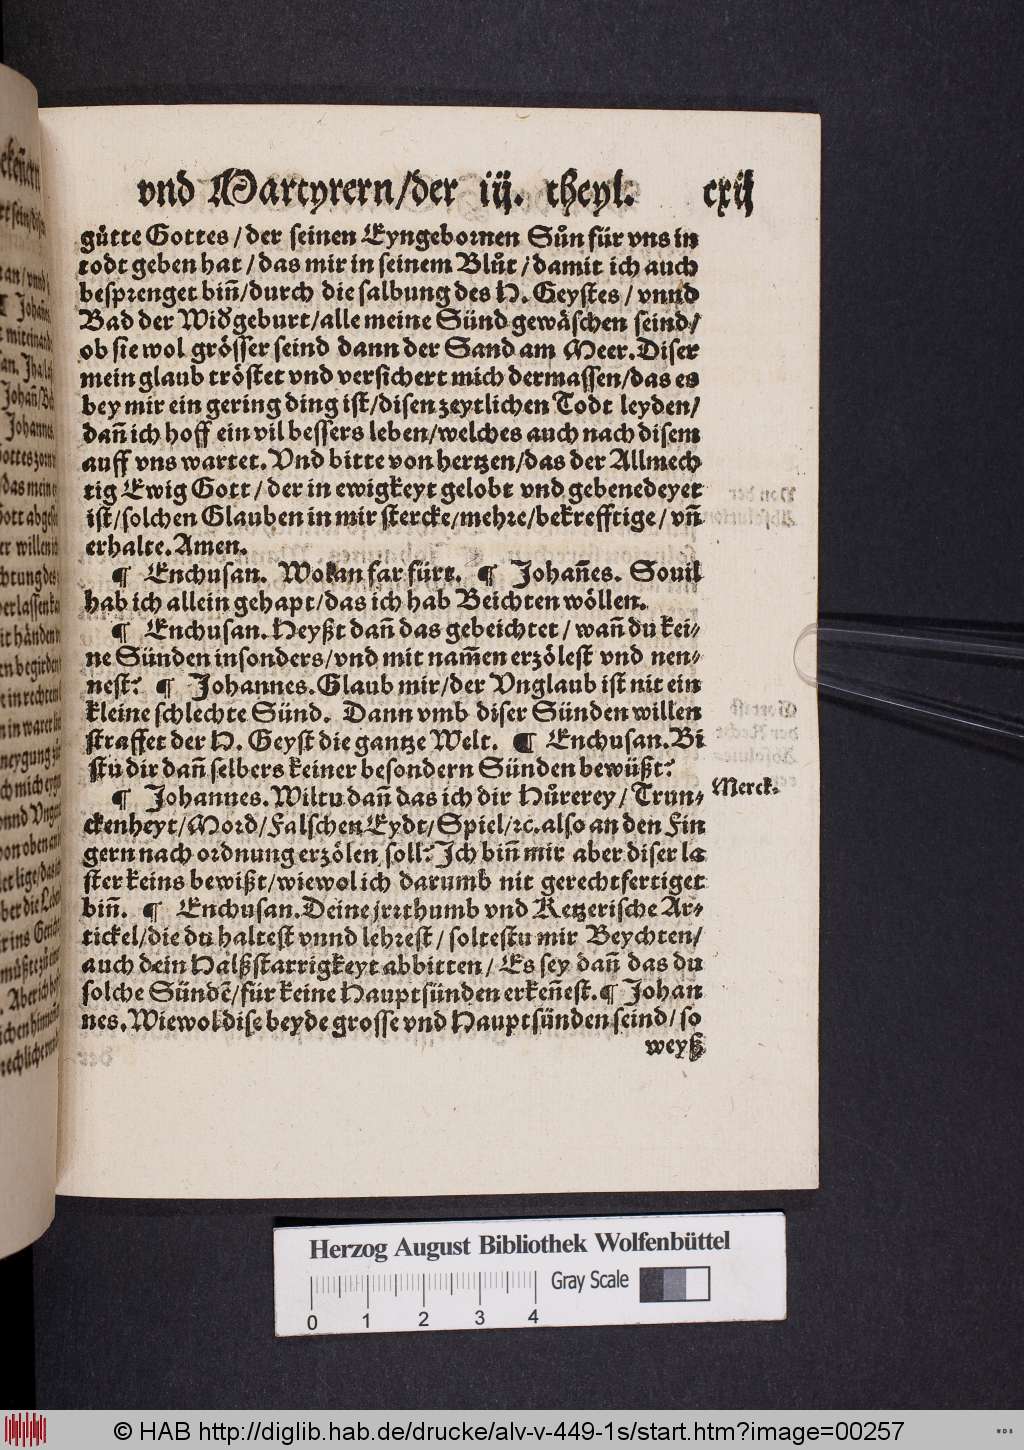 vnd Martyrern/der iij. theyl. cxij
gůtte Gottes/der seinen Eyngebornen Sůn für vns in
todt geben hat/das mir in seinem Blůt/damit ich auch
besprenget bin̄/durch die salbung des H. Geystes/vnnd
Bad der Widgeburt/alle meine Sünd gewäschen seind/
ob sie wol grösser seind dann der Sand am Meer. Diser
mein glaub tröstet vnd versichert mich dermassen/das es
bey mir ein gering ding ist/disen zeytlichen Todt leyden/
dan̄ ich hoff ein vil bessers leben/welches auch nach disem
auff vns wartet. Vnd bitte von hertzen/das der Allmech
tig Ewig Gott/der in ewigkeyt gelobt vnd gebenedeyet
ist/solchen Glauben in mir stercke/mehre/bekrefftige/vn̄
erhalte. Amen.
¶ Enchusan. Wolan far fürt. ¶ Johan̄es. Souil
hab ich allein gehapt/das ich hab Beichten wöllen.
¶ Enchusan. Heyßt dan̄ das gebeichtet/wan̄ du kei-
ne Sünden insonders/vnd mit nam̄en erzölest vnd nen-
nest? ¶ Johannes. Glaub mir/der Vnglaub ist nit ein
kleine schlechte Sünd. Dann vmb diser Sünden willen
straffet der H. Geyst die gantze Welt. ¶ Enchusan. Bi
stu dir dan̄ selbers keiner besondern Sünden bewüßt?
¶ Johannes. Wiltu dan̄ das ich dir Hůrerey/Trun-
ckenheyt/Mord/Falschen Eydt/Spiel/ꝛc. also an den Fin
gern nach ordnung erzölen soll? Ich bin̄ mir aber diser la
ster keins bewißt/wiewol ich darumb nit gerechtfertiget
bin̄. ¶ Enchusan. Deine jrrthumb vnd Ketzerische Ar-
tickel/die du haltest vnnd lehrest/soltestu mir Beychten/
auch dein Halßstarrigkeyt abbitten/Es sey dan̄ das du
solche Sündē/für keine Hauptsünden erken̄est. ¶ Johan
nes. Wiewol dise beyde grosse vnd Hauptsünden seind/so
weyß
Merck.
Herzog August Bibliothek Wolfenbüttel
Gray Scale
0 1 2 3 4
© HAB http://diglib.hab.de/drucke/alv-v-449-1s/start.htm?image=00257